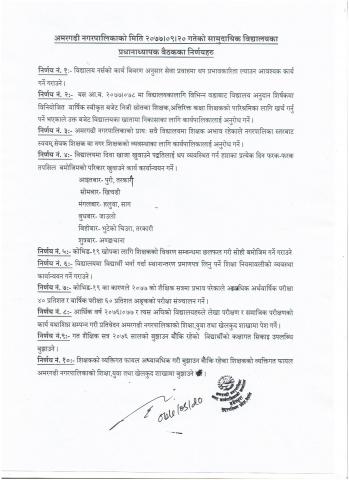 अमरगढी नगरपालिकाको मिति २०७७/०९/२० गतेको सामुदायिक विद्यालयका
प्रधानाध्यापक बैठकका निर्णयहरु
निर्णय नं. १:- विद्यालय नर्सको कार्य विवरण अनुसार सेवा प्रवाहमा थप प्रभावकारिता ल्याउन आवश्यक कार्य
गर्ने गराउने।
निर्णय नं. २:- यस आ.व. २०७७/०७८ मा विद्यालयकालागि विभिन्न वडाबाट विद्यालय अनुदान शिर्षकमा
विनियोजित वार्षिक स्वीकृत बजेट निजी स्रोतका शिक्षक,अतिरिक्त कक्षा शिक्षकको पारिश्रमिकका लागि खर्च गर्नु
पर्ने भएकाले उक्त बजेट विद्यालयका खातामा निकासाका लागि कार्यपालिकालाई अनुरोध गर्ने।
निर्णय नं. ३:- अमरगढी नगरपालिकाको प्राय: सबै विद्यालयमा शिक्षक अभाव रहेकाले नगरपालिका स्तरबाट
स्वयम् सेवक शिक्षक वा नगर शिक्षकको व्यवस्थाका लागि कार्यपालिकालाई अनुरोध गर्ने।
निर्णय नं. ४:- विद्यालयमा दिवा खाजा खुवाउने पद्दतिलाई थप व्यवस्थित गर्न हप्ताका प्रत्येक दिन फरक-फरक
तपसिल बमोजिमको परिकार खुवाउने कार्य कार्यान्वयन गर्ने।
आइतबार- पुरी, तरकारी
सोमबार- खिचडी
मंगलबार- हलुवा, साग
बुधबार- जाउलो
बिहीबार- भुटेको चिउरा, तरकारी
शुक्रबार- अण्डाचाना
निर्णय नं. ५:- कोभिड-१९ खोपका लागि शिक्षकको विवरण सम्बन्धमा छलफल गरी सोही बमोजिम गर्ने गराउने।
निर्णय नं. ६:- विद्यालयमा विद्यार्थी भर्ना गर्दा स्थानान्तरण प्रमाणपत्र लिनु पर्ने शिक्षा नियमावलीको व्यवस्था
कार्यान्वयन गर्ने गराउने।
निर्णय नं. ७:- कोभिड-१९ का कारणले २०७७ को शैक्षिक सत्रमा प्रभाव परेकाले अर्धवार्षिक परीक्षा
४० प्रतिशत र वार्षिक परीक्षा ६० प्रतिशत अङ्कको परीक्षा संञ्चालन गर्ने।
निर्णय नं. ८:- आर्थिक वर्ष २०७६/०७७ र त्यस अघिको विद्यालयहरुले लेखा परीक्षण र समाजिक परीक्षणको
कार्य यथाशिघ्र सम्पन्न गरी प्रतिवेदन अमरगढी नगरपालिकाको शिक्षा,युवा तथा खेलकुद शाखामा पेश गर्ने।
निर्णय नं.९:- गत शैक्षिक सत्र २०७६ सालको बुझाउन बाँकि रहेको विद्यार्थीको कक्षागत सिकाइ उपलब्धि
बुझाउने।
निर्णय नं. १०:- शिक्षकको व्यक्तिगत फायल अध्यावधिक गरी बुझाउन बाँकि रहेका शिक्षकको व्यक्तिगत फायल
अमरगढी नगरपालिकाको शिक्षा,युवा तथा खेलकुद शाखामा बुझाउने।
०७७/०९/२०